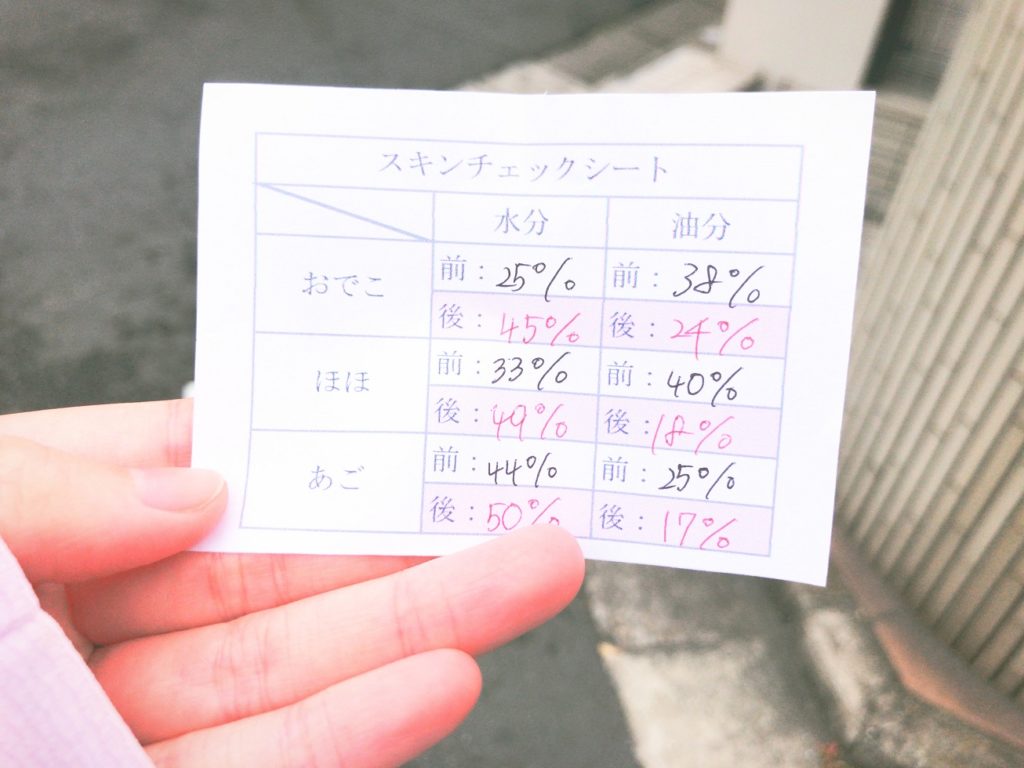 スキンチェックシート
水分 油分
おでこ 前：25% 前：38%
後：45% 後：24%
ほほ 前：33% 前：40%
後：49% 後：18%
あご 前：44% 前：25%
後：50% 後：17%